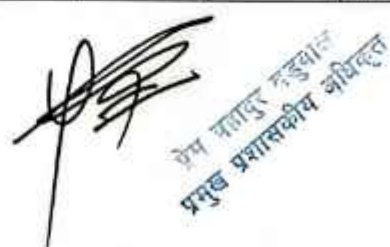 प्रेम बहादुर
प्रमुख प्रशासकीय अधिकृत